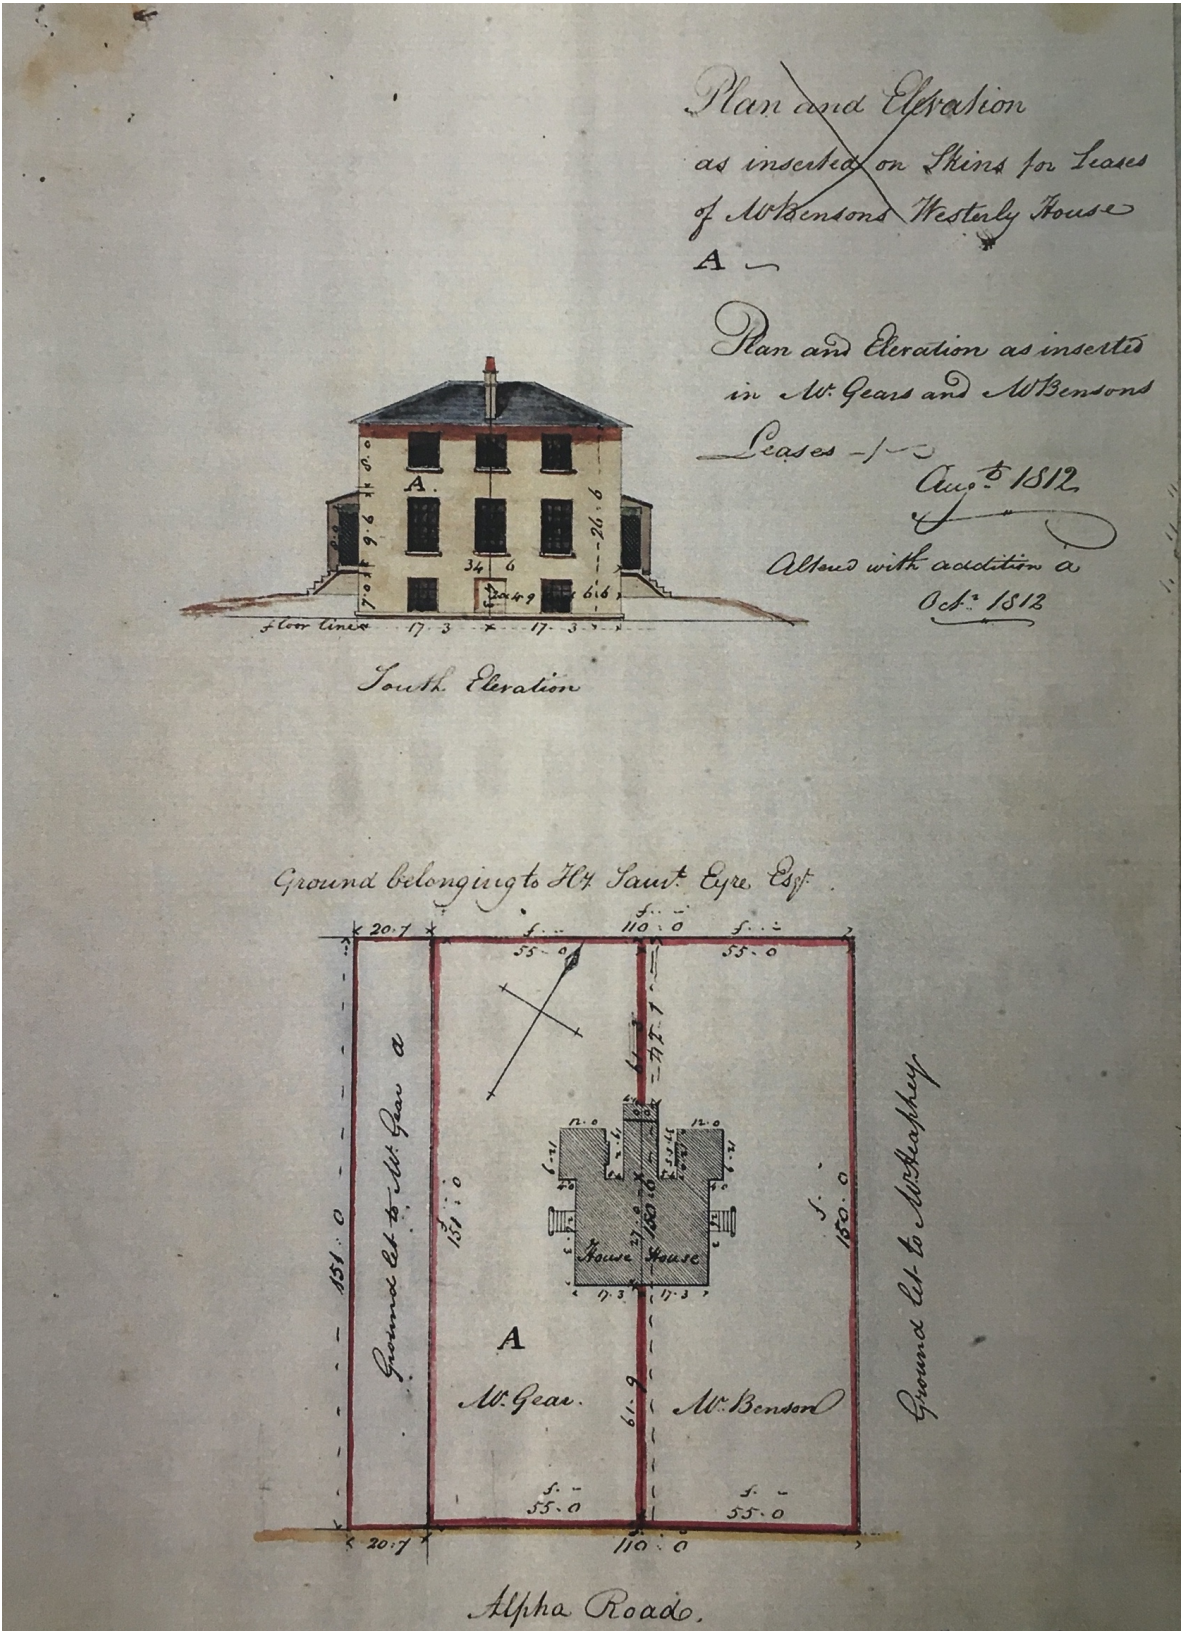 Plan and Elevation
as inserted on Skins for Leases
of Mr Bensons Westerly House
A
Plan and Elevation as inserted
in Mr. Gears and Mr Bensons
Leases
Augt 1812
Altered with addition a
Octr 1812
8.0
A.
9.6
8.0
26.6
34 6
4.9
6.6
7.0
floor line
17.3
17.3
South Elevation
Ground belonging to Hy. Saml. Eyre Esqr.
20.7
f.
110.0
f.
f.
55.0
55.0
Ground let to Mr. Gear a
151.0
f.
151.0
12.0
12.0
4.0
4.0
27.0
150.6
House
House
17.3
17.3
f.
150.0
Ground let to Mr Heaphey
A
61.9
Mr. Gear.
Mr. Benson
f.
55.0
f.
55.0
20.7
110.0
Alpha Road.